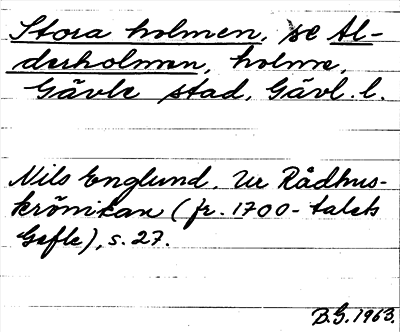 Stora holmen, se Al-
derholmen, holme,
Gävle stad, Gävl. l.
Nils Englund. Ur Rådhus-
krönikan (fr. 1700-talets
Gefle), s. 27.
B.G. 1963.